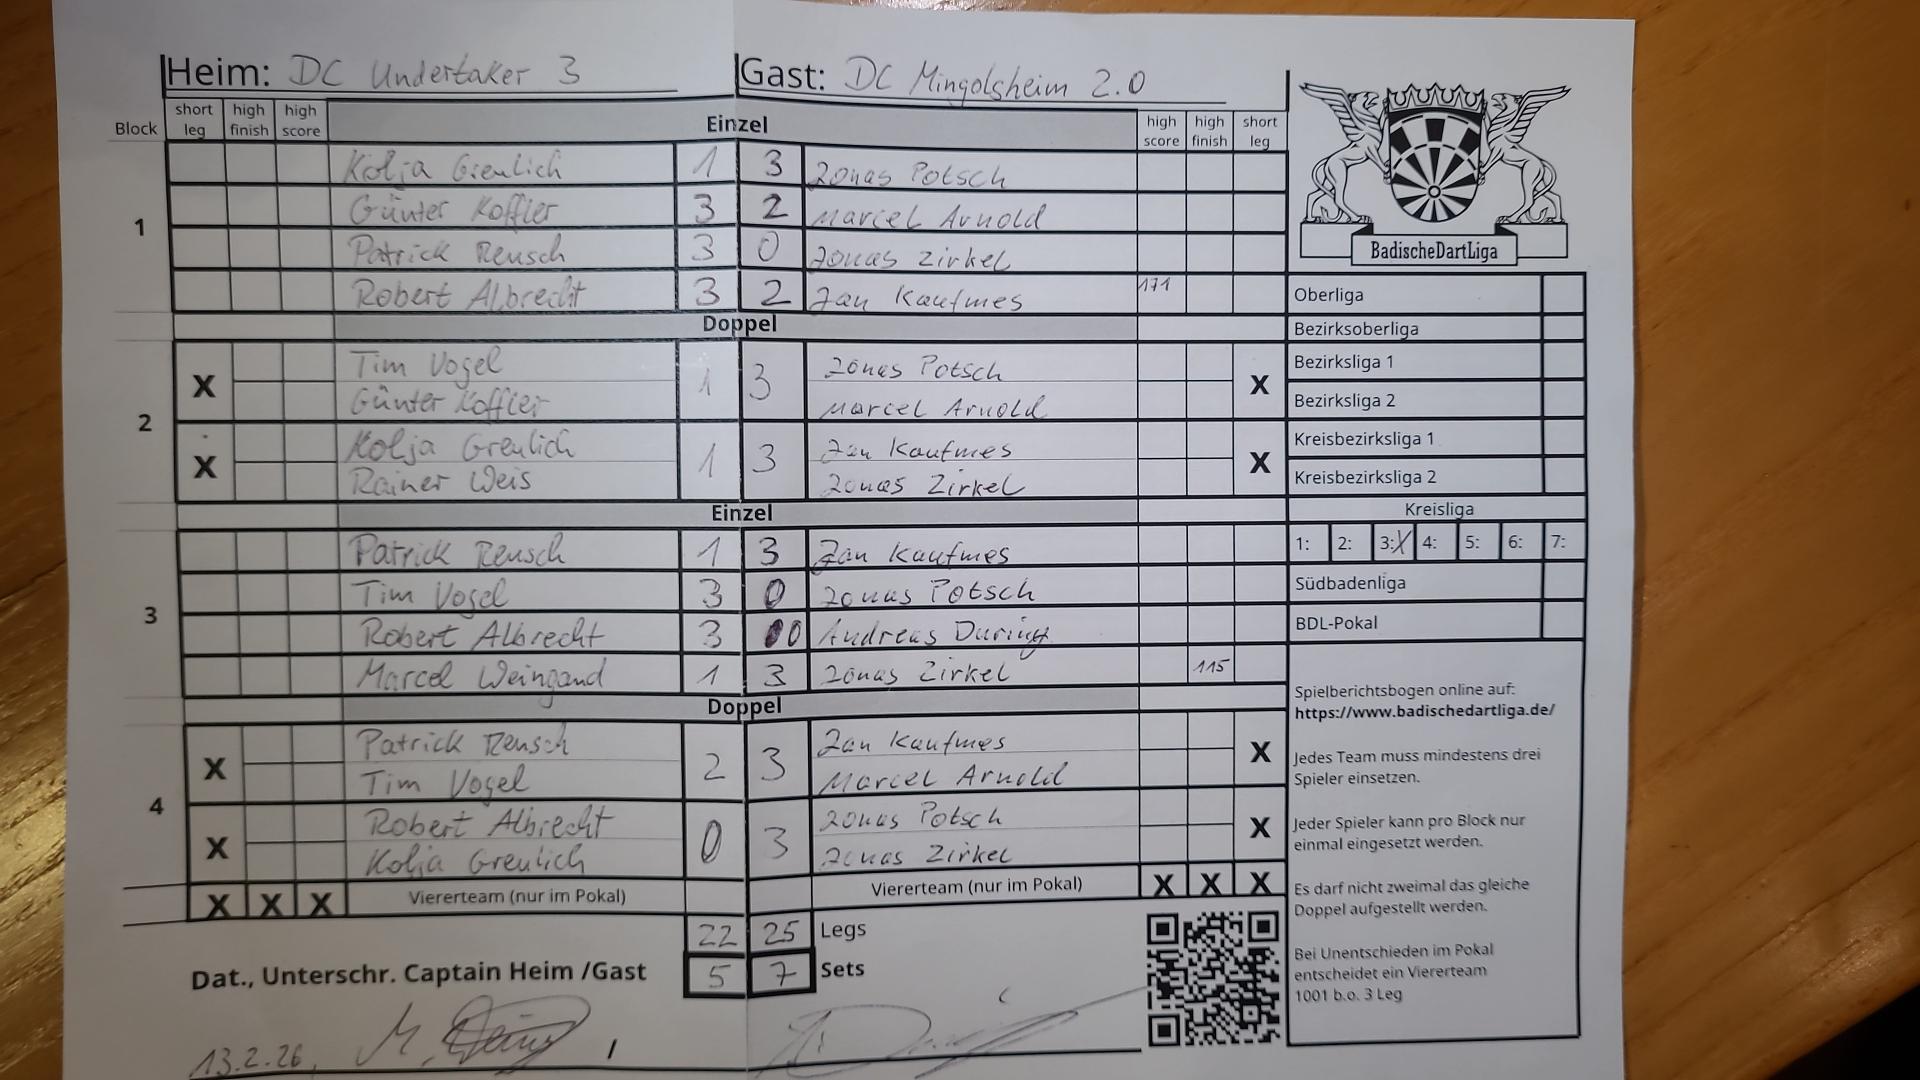 Heim: DC Undertaker 3 Gast: DC Mingolsheim 2.0
Block short leg high finish high score Einzel high score high finish short leg
1
Kolja Greulich 1 3 Jonas Potsch
Günter Koffler 3 2 Marcel Arnold
Patrick Reusch 3 0 Jonas Zirkel
Robert Albrecht 3 2 Jan Kaufmes 171
Doppel
2
X Tim Vogel 1 3 Jonas Potsch X
Günter Koffler Marcel Arnold
X Kolja Greulich 1 3 Jan Kaufmes X
Rainer Weis Jonas Zirkel
Einzel
3
Patrick Reusch 1 3 Jan Kaufmes
Tim Vogel 3 0 Jonas Potsch
Robert Albrecht 3 0 Andreas
Marcel Weingand 1 3 Jonas Zirkel 115
Doppel
4
X Patrick Reusch 2 3 Jan Kaufmes X
Tim Vogel Marcel Arnold
X Robert Albrecht 0 3 Jonas Potsch X
Kolja Greulich Jonas Zirkel
X X X Viererteam (nur im Pokal) Viererteam (nur im Pokal) X X X
22 25 Legs
5 7 Sets
Dat., Unterschr. Captain Heim /Gast
13.2.26, /
BadischeDartLiga
Oberliga
Bezirksoberliga
Bezirksliga 1
Bezirksliga 2
Kreisbezirksliga 1
Kreisbezirksliga 2
Kreisliga
1: 2: 3: X 4: 5: 6: 7:
Südbadenliga
BDL-Pokal
Spielberichtsbogen online auf:
https://www.badischedartliga.de/
Jedes Team muss mindestens drei
Spieler einsetzen.
Jeder Spieler kann pro Block nur
einmal eingesetzt werden.
Es darf nicht zweimal das gleiche
Doppel aufgestellt werden.
Bei Unentschieden im Pokal
entscheidet ein Viererteam
1001 b.o. 3 Leg